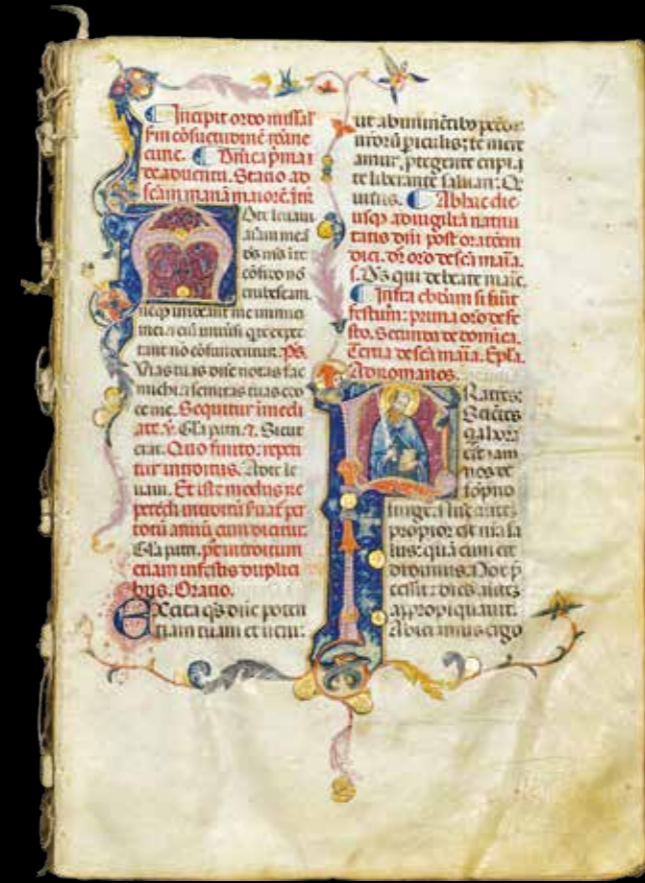 Incipit ordo missal'
s'm cōsuetudinē romane
curie. Dn̄ica p̄ma i
de aduentu. Statio ad
sc̄am mariā maiorē. Intr̄
AD te leuaui
aīam meā
ds ms in te
cōfido nō
erubescam.
neq; irrideant me inimici
mei. q te expec
tant nō cōfundentur. ps.
Vias tuas dn̄e notas fac
michi: 7 semitas tuas edo
ce me. Sequitur īmedi
ate. v. Gl'a patri. 7. Sicut
erat. Quo finito: repeti
tur introitus. Ad te le
uaui. Et iste modus re
petēdi introitū seruat̄ per
totū annū cum dicitur.
Gl'a patri. p̄t introitum
etiam in festis duplici
bus. Oratio.
Excita qs dn̄e poten
tiam tuam et ueni:
ut ab iminētibȝ peccat
noroȝ piculis: te mere
amur, ptegente eripi. 7
te liberante saluari: Q̄
uiuis. Ab hac die
usqȝ ad uigiliā natiui
tatis dn̄i post oratōem
diei. dr̄ oro de sc̄a maīa.
s. Ds qui de beate maīe.
Infra ebdam̄ si fuit
festum: prima oro de fe
sto. Secunda de domīca.
Tertia de sc̄a maīa. Ep̄la.
Ad romanos.
FRatres:
Scientes
q̄a hora
est iam
nos de
sōpno
surge. Nūc autēȝ
propior est nr̄a sa
lus: quā cum cre
didimus. Nox p̄
cessit: dies autēȝ
appropinquauit.
Abiciamus ergo